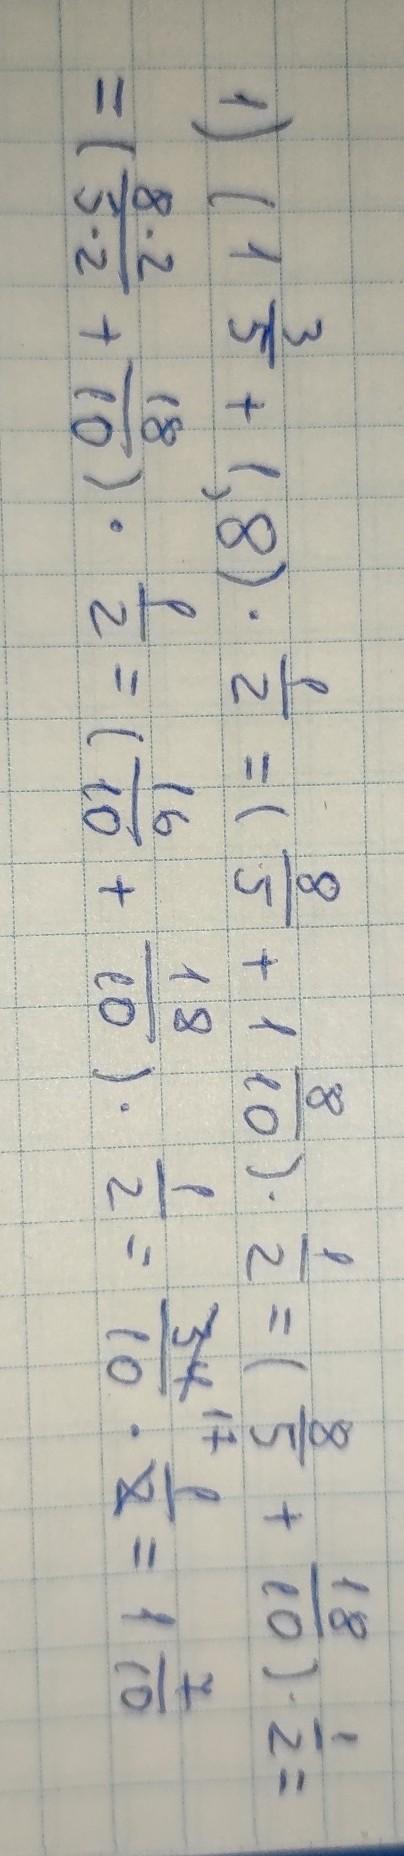 1) (1 3/5 + 1,8) · 1/2 = (8/5 + 1 8/10) · 1/2 = (8/5 + 18/10) · 1/2 =
= (8·2/5·2 + 18/10) · 1/2 = (16/10 + 18/10) · 1/2 = 34/10 17 · 1/2 = 1 7/10